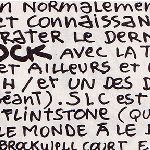 N NORMALEMEN
ET CONNAISSAN
RATER LE DERN
OCK AVEC LA T
ET AILLEURS ET C
H/ET UN DES D
ÉANT). SLC EST
FLINTSTONE (QU
LE MONDE À LE J
BROCKWELL COURT E